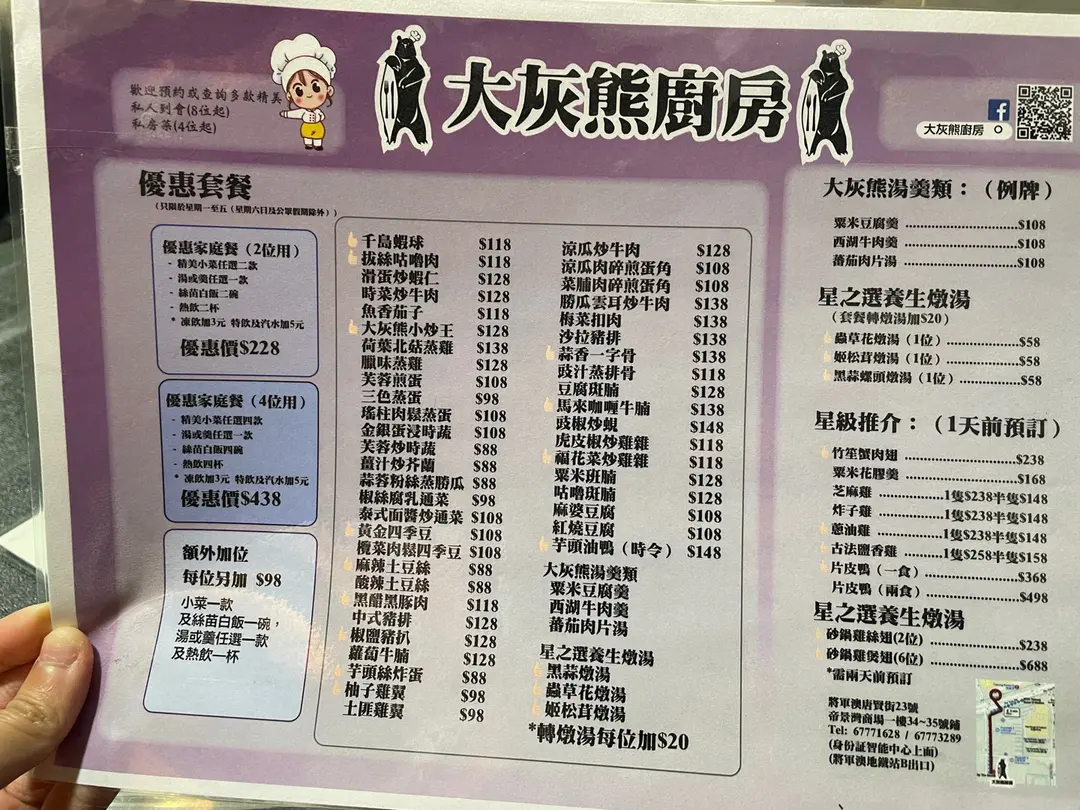 歡迎預約或查詢多款精美
私人到會(8位起)
私房菜(4位起)
大灰熊廚房
大灰熊廚房
優惠套餐
(只限於星期一至五(星期六日及公眾假期除外))
優惠家庭餐(2位用)
- 精美小菜任選二款
- 湯或羹任選一款
- 絲苗白飯二碗
- 熱飲二杯
* 凍飲加3元 特飲及汽水加5元
優惠價$228
優惠家庭餐(4位用)
- 精美小菜任選四款
- 湯或羹任選一款
- 絲苗白飯四碗
- 熱飲四杯
* 凍飲加3元 特飲及汽水加5元
優惠價$438
額外加位
每位另加 $98
小菜一款
及絲苗白飯一碗，
湯或羹任選一款
及熱飲一杯
千島蝦球 $118
拔絲咕嚕肉 $118
滑蛋炒蝦仁 $128
時菜炒牛肉 $128
魚香茄子 $118
大灰熊小炒王 $128
荷葉北菇蒸雞 $138
臘味蒸雞 $128
芙蓉煎蛋 $108
三色蒸蛋 $98
瑤柱肉鬆蒸蛋 $108
金銀蛋浸時蔬 $108
芙蓉炒時蔬 $88
薑汁炒芥蘭 $88
蒜蓉粉絲蒸勝瓜 $88
椒絲腐乳通菜 $98
泰式面醬炒通菜 $108
黃金四季豆 $108
欖菜肉鬆四季豆 $108
麻辣土豆絲 $88
酸辣土豆絲 $88
黑醋黑豚肉 $118
中式豬排 $128
椒鹽豬扒 $128
蘿蔔牛腩 $128
芋頭絲炸蛋 $88
柚子雞翼 $98
土匪雞翼 $98
涼瓜炒牛肉 $128
涼瓜肉碎煎蛋角 $108
菜脯肉碎煎蛋角 $108
勝瓜雲耳炒牛肉 $138
梅菜扣肉 $138
沙拉豬排 $138
蒜香一字骨 $138
豉汁蒸排骨 $118
豆腐斑腩 $128
馬來咖喱牛腩 $138
豉椒炒蜆 $148
虎皮椒炒雞雜 $118
福花菜炒雞雜 $118
粟米班腩 $128
咕嚕斑腩 $128
麻婆豆腐 $108
紅燒豆腐 $108
芋頭油鴨(時令) $148
大灰熊湯羹類
粟米豆腐羹
西湖牛肉羹
蕃茄肉片湯
星之選養生燉湯
黑蒜燉湯
蟲草花燉湯
姬松茸燉湯
*轉燉湯每位加$20
大灰熊湯羹類：(例牌)
粟米豆腐羹 ........................$108
西湖牛肉羹 ........................$108
蕃茄肉片湯 ........................$108
星之選養生燉湯
(套餐轉燉湯加$20)
蟲草花燉湯(1位) ................$58
姬松茸燉湯(1位) ................$58
黑蒜螺頭燉湯(1位) ..............$58
星級推介：(1天前預訂)
竹笙蟹肉翅 ........................$238
粟米花膠羹 ........................$168
芝麻雞 ................1隻$238半隻$148
炸子雞 ................1隻$238半隻$148
蔥油雞 ................1隻$238半隻$148
古法鹽香雞 ............1隻$258半隻$158
片皮鴨(一食) ......................$368
片皮鴨(兩食) ......................$498
星之選養生燉湯
砂鍋雞絲翅(2位) ................$238
砂鍋雞煲翅(6位) ................$688
*需兩天前預訂
將軍澳唐賢街23號
帝景灣商場一樓34~35號鋪
Tel: 67771628 / 67773289
(身份証智能中心上面)
(將軍澳地鐵站B出口)